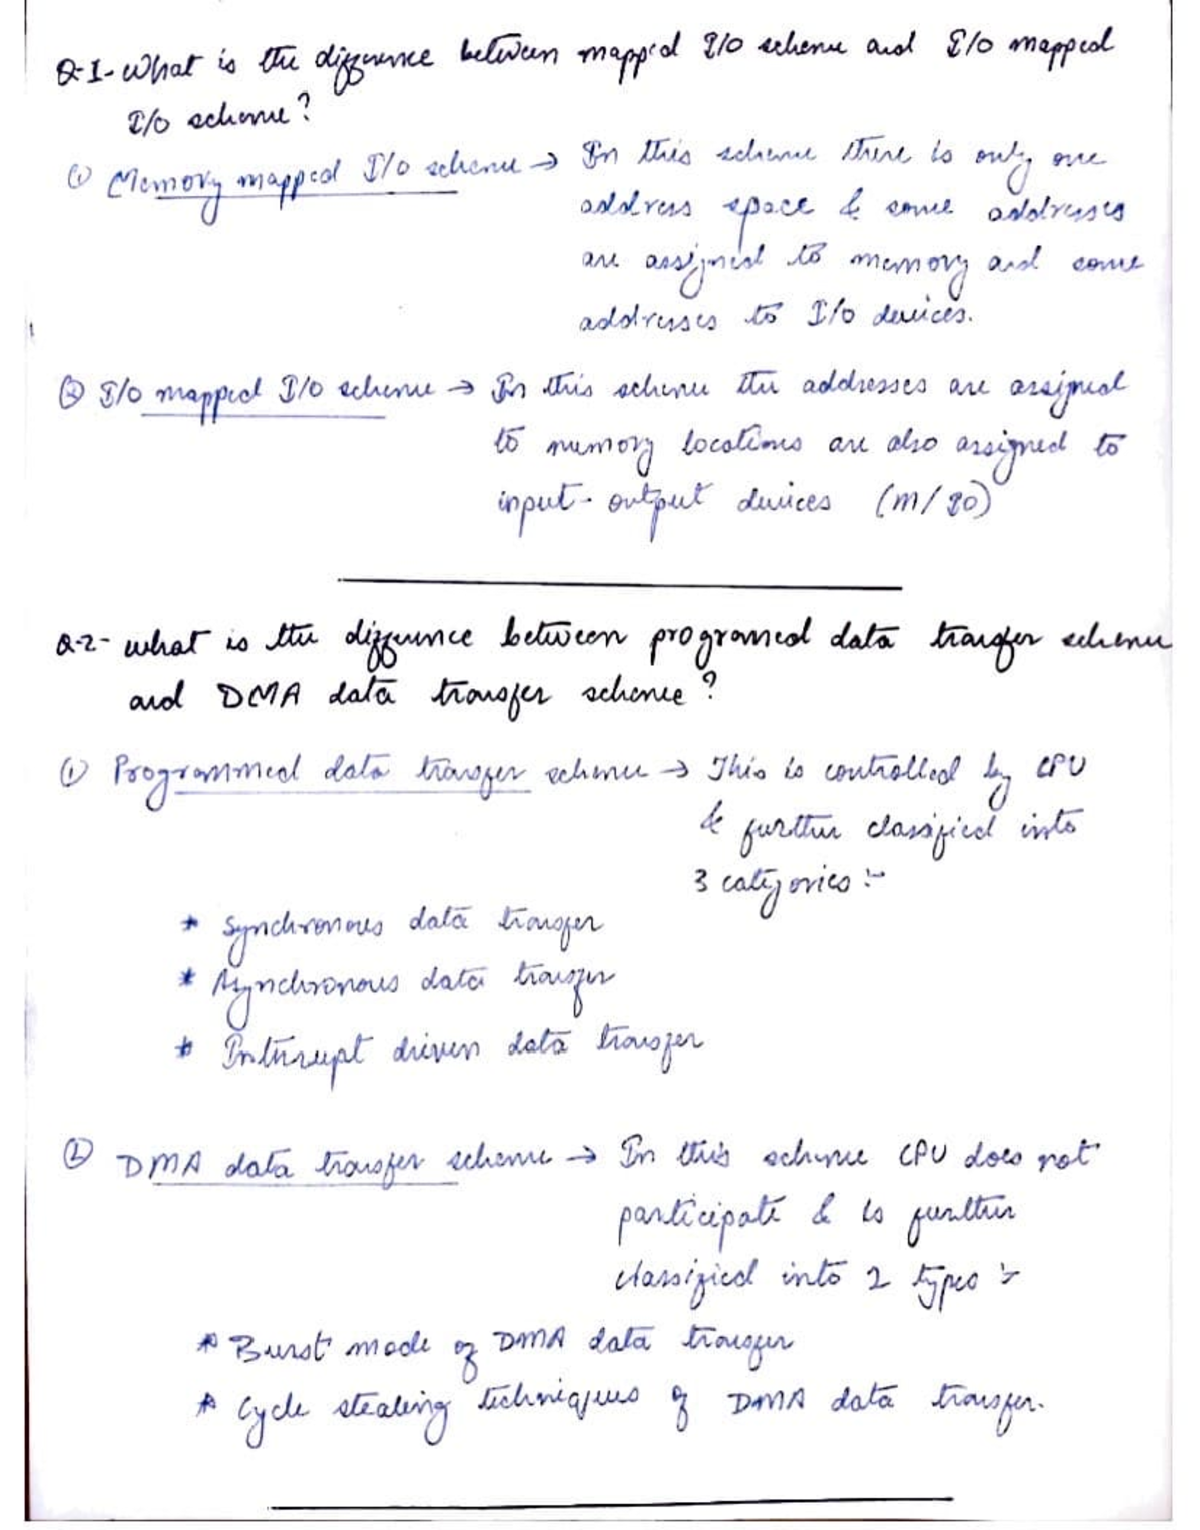 Q-1- What is the difference between mapped I/O scheme and I/O mapped
I/O scheme?
① Memory mapped I/O scheme → In this scheme there is only one
address space & some addresses
are assigned to memory and some
addresses to I/O devices.
② I/O mapped I/O scheme → In this scheme the addresses are assigned
to memory locations are also assigned to
input-output devices (m/IO)
Q-2- what is the difference between programed data transfer scheme
and DMA data transfer scheme?
① Programmed data transfer scheme → This is controlled by CPU
& further classified into
3 categories :-
* Synchronous data transfer
* Asynchronous data transfer
* Interrupt driven data transfer
② DMA data transfer scheme → In this scheme CPU does not
participate & is further
classified into 2 types :-
* Burst mode of DMA data transfer
* Cycle stealing techniques of DMA data transfer.